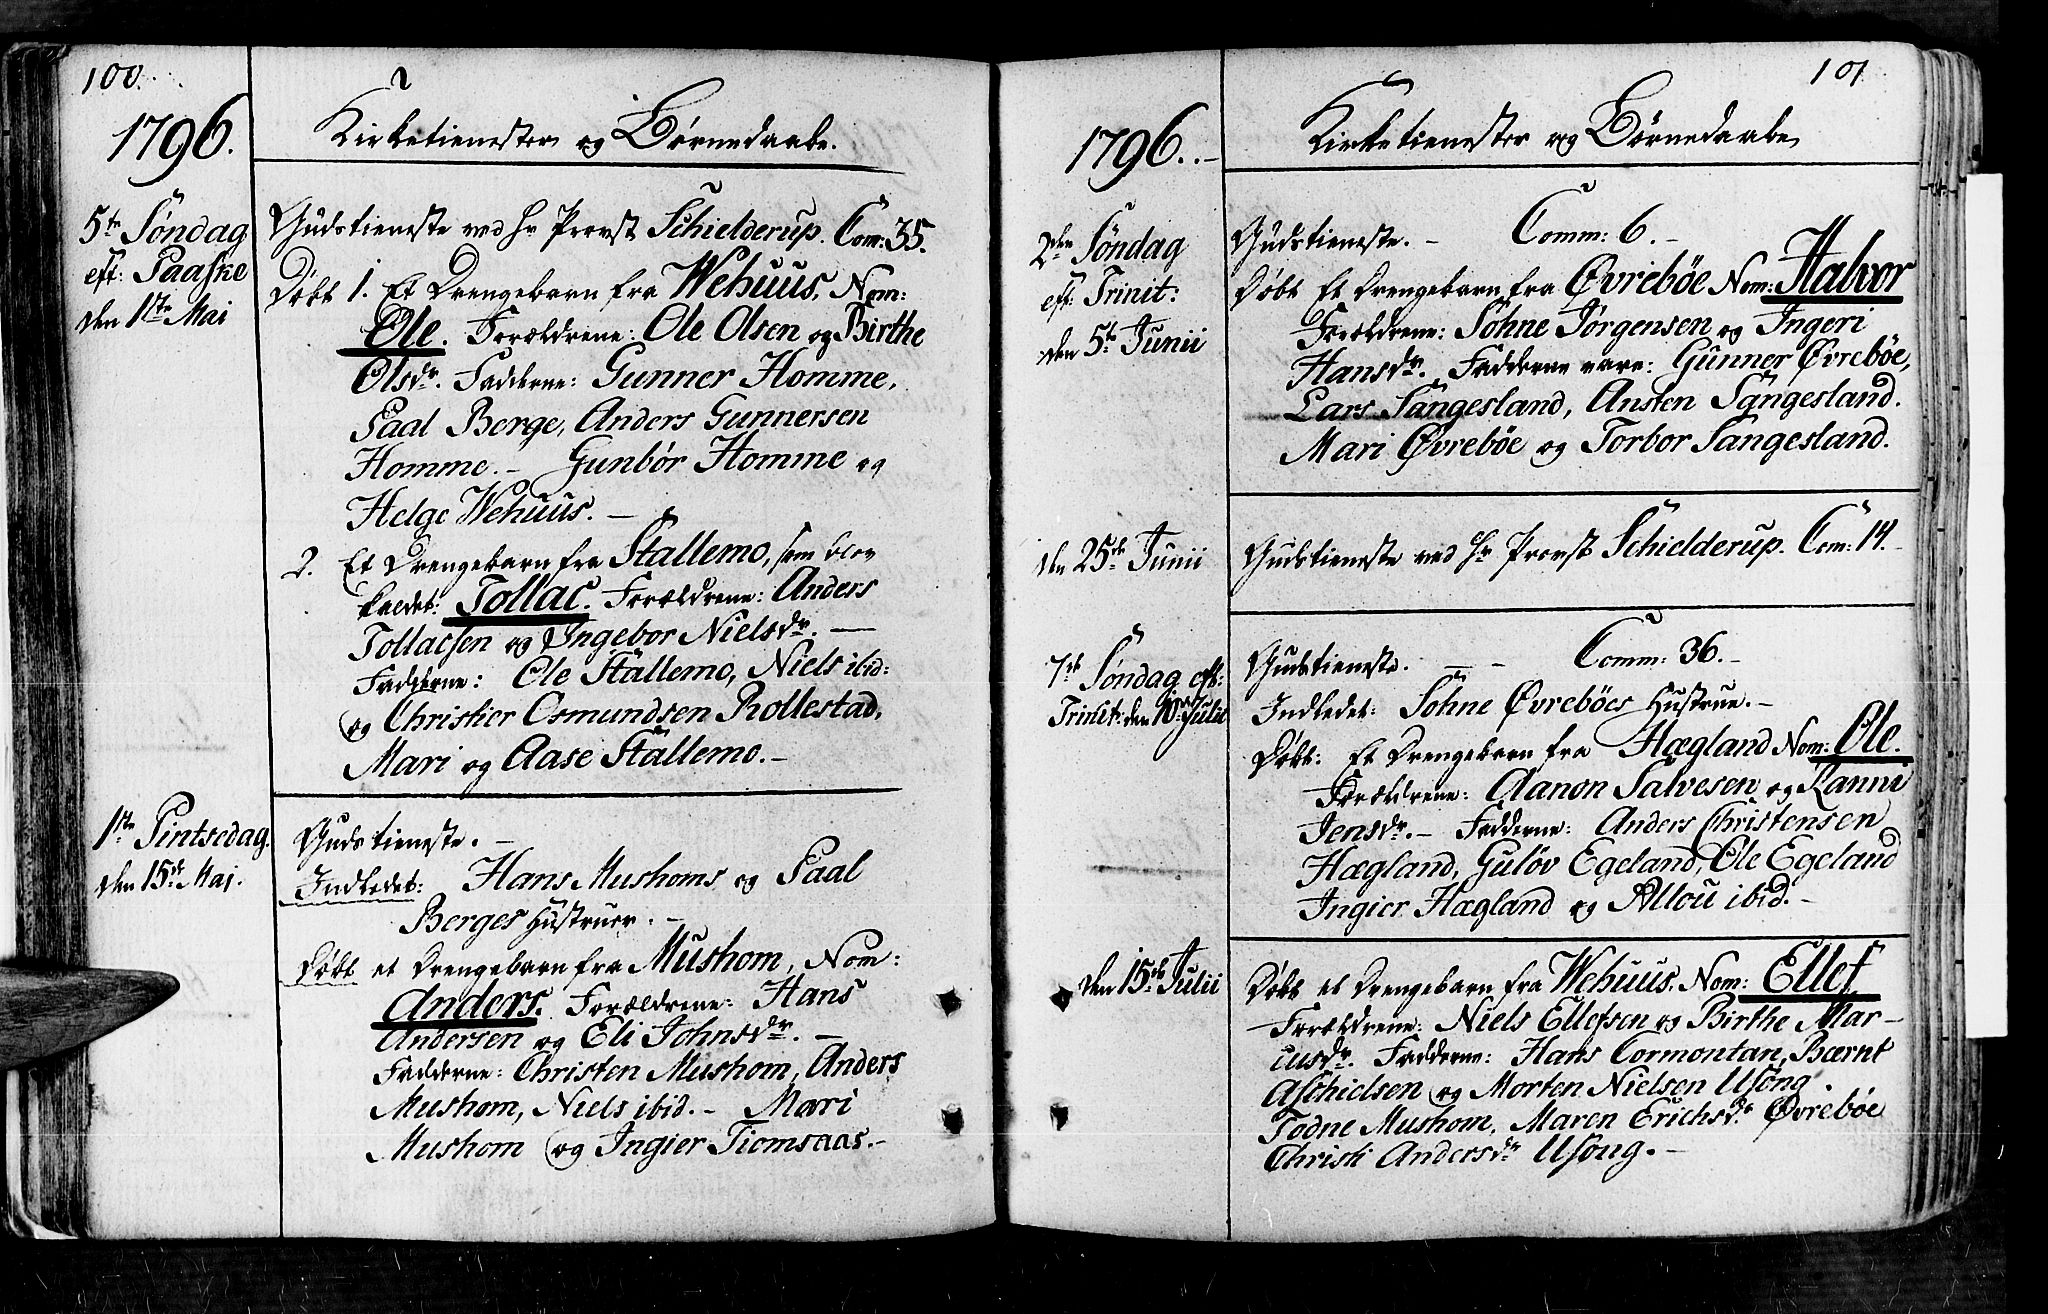 100.
1796.
Kirketienester og Børnedaabe.
5te Søndag
eft: Paaske
den 1te Mai
Gudstieneste ved Hr Provst Schielderup. Com: 35.
Døbt 1. Et Drengebarn fra Wehuus, Nom:
Ole. Forældrene: Ole Olsen og Birthe
Olsdr. Fadderne: Gunner Homme,
Paal Berge, Anders Gunnersen
Homme. - Gunbør Homme og
Helge Wehuus. -
2. Et Drengebarn fra Stallemo, som blev
kaldet: Tollac. Forældrene: Anders
Tollacsen og Ingebor Nielsdr. -
Fadderne: Ole Stallemo, Niels ibid:
og Christier Osmundsen Rollestad,
Mari og Aase Stallemo. -
1te Pintsedag.
den 15de Maj.
Gudstieneste. -
Indledet: Hans Mushoms og Paal
Berges Hustruer. -
Døbt et Drengebarn fra Mushom, Nom:
Anders. Forældrene: Hans
Andersen og Eli Johnsdr. -
Fadderne: Christen Mushom, Anders
Mushom, Niels ibid. - Mari
Mushom og Ingier Tiomsaas. -
101
1796. -
Kirketienester og Børnedaabe
2den Søndag
eft: Trinit:
den 5te Junii
Gudstieneste. - Comm: 6. -
Døbt Et Drengebarn fra Øvrebøe Nom: Halvor
Forældrene: Söhne Jørgensen og Ingeri
Hansdr. Fadderne vare: Gunner Øvrebøe,
Lars Sangesland, Ansten Sangesland.
Mari Øvrebøe og Torbor Sangesland.
den 25de Junii
Gudstieneste ved Hr Provst Schielderup. Com: 14. -
7de Søndag eft:
Trinit: den 10de Julii
Gudstieneste. - - Comm: 36. -
Indledet: Söhne Øvrebøes Hustrue. -
Døbt: Et Drengebarn fra Hægland Nom: Ole.
Forældrene: Aanon Salvesen og Ranni
Jensdr. - Fadderne: Anders Christensen
Hægland, Guløv Egeland, Ole Egeland
Ingier Hægland og Allou ibid. -
den 15de Julii
Døbt et Drengebarn fra Wehuus. Nom: Ellef.
Forældrene: Niels Ellefsen og Birthe Mar-
cusdr. Fadderne: Hans Cormontan, Bærnt
Aschielsen og Morten Nielsen Usöng.
Todne Mushom, Maren Erichsdr Øvrebøe
Christi Andersdr Usöng. -